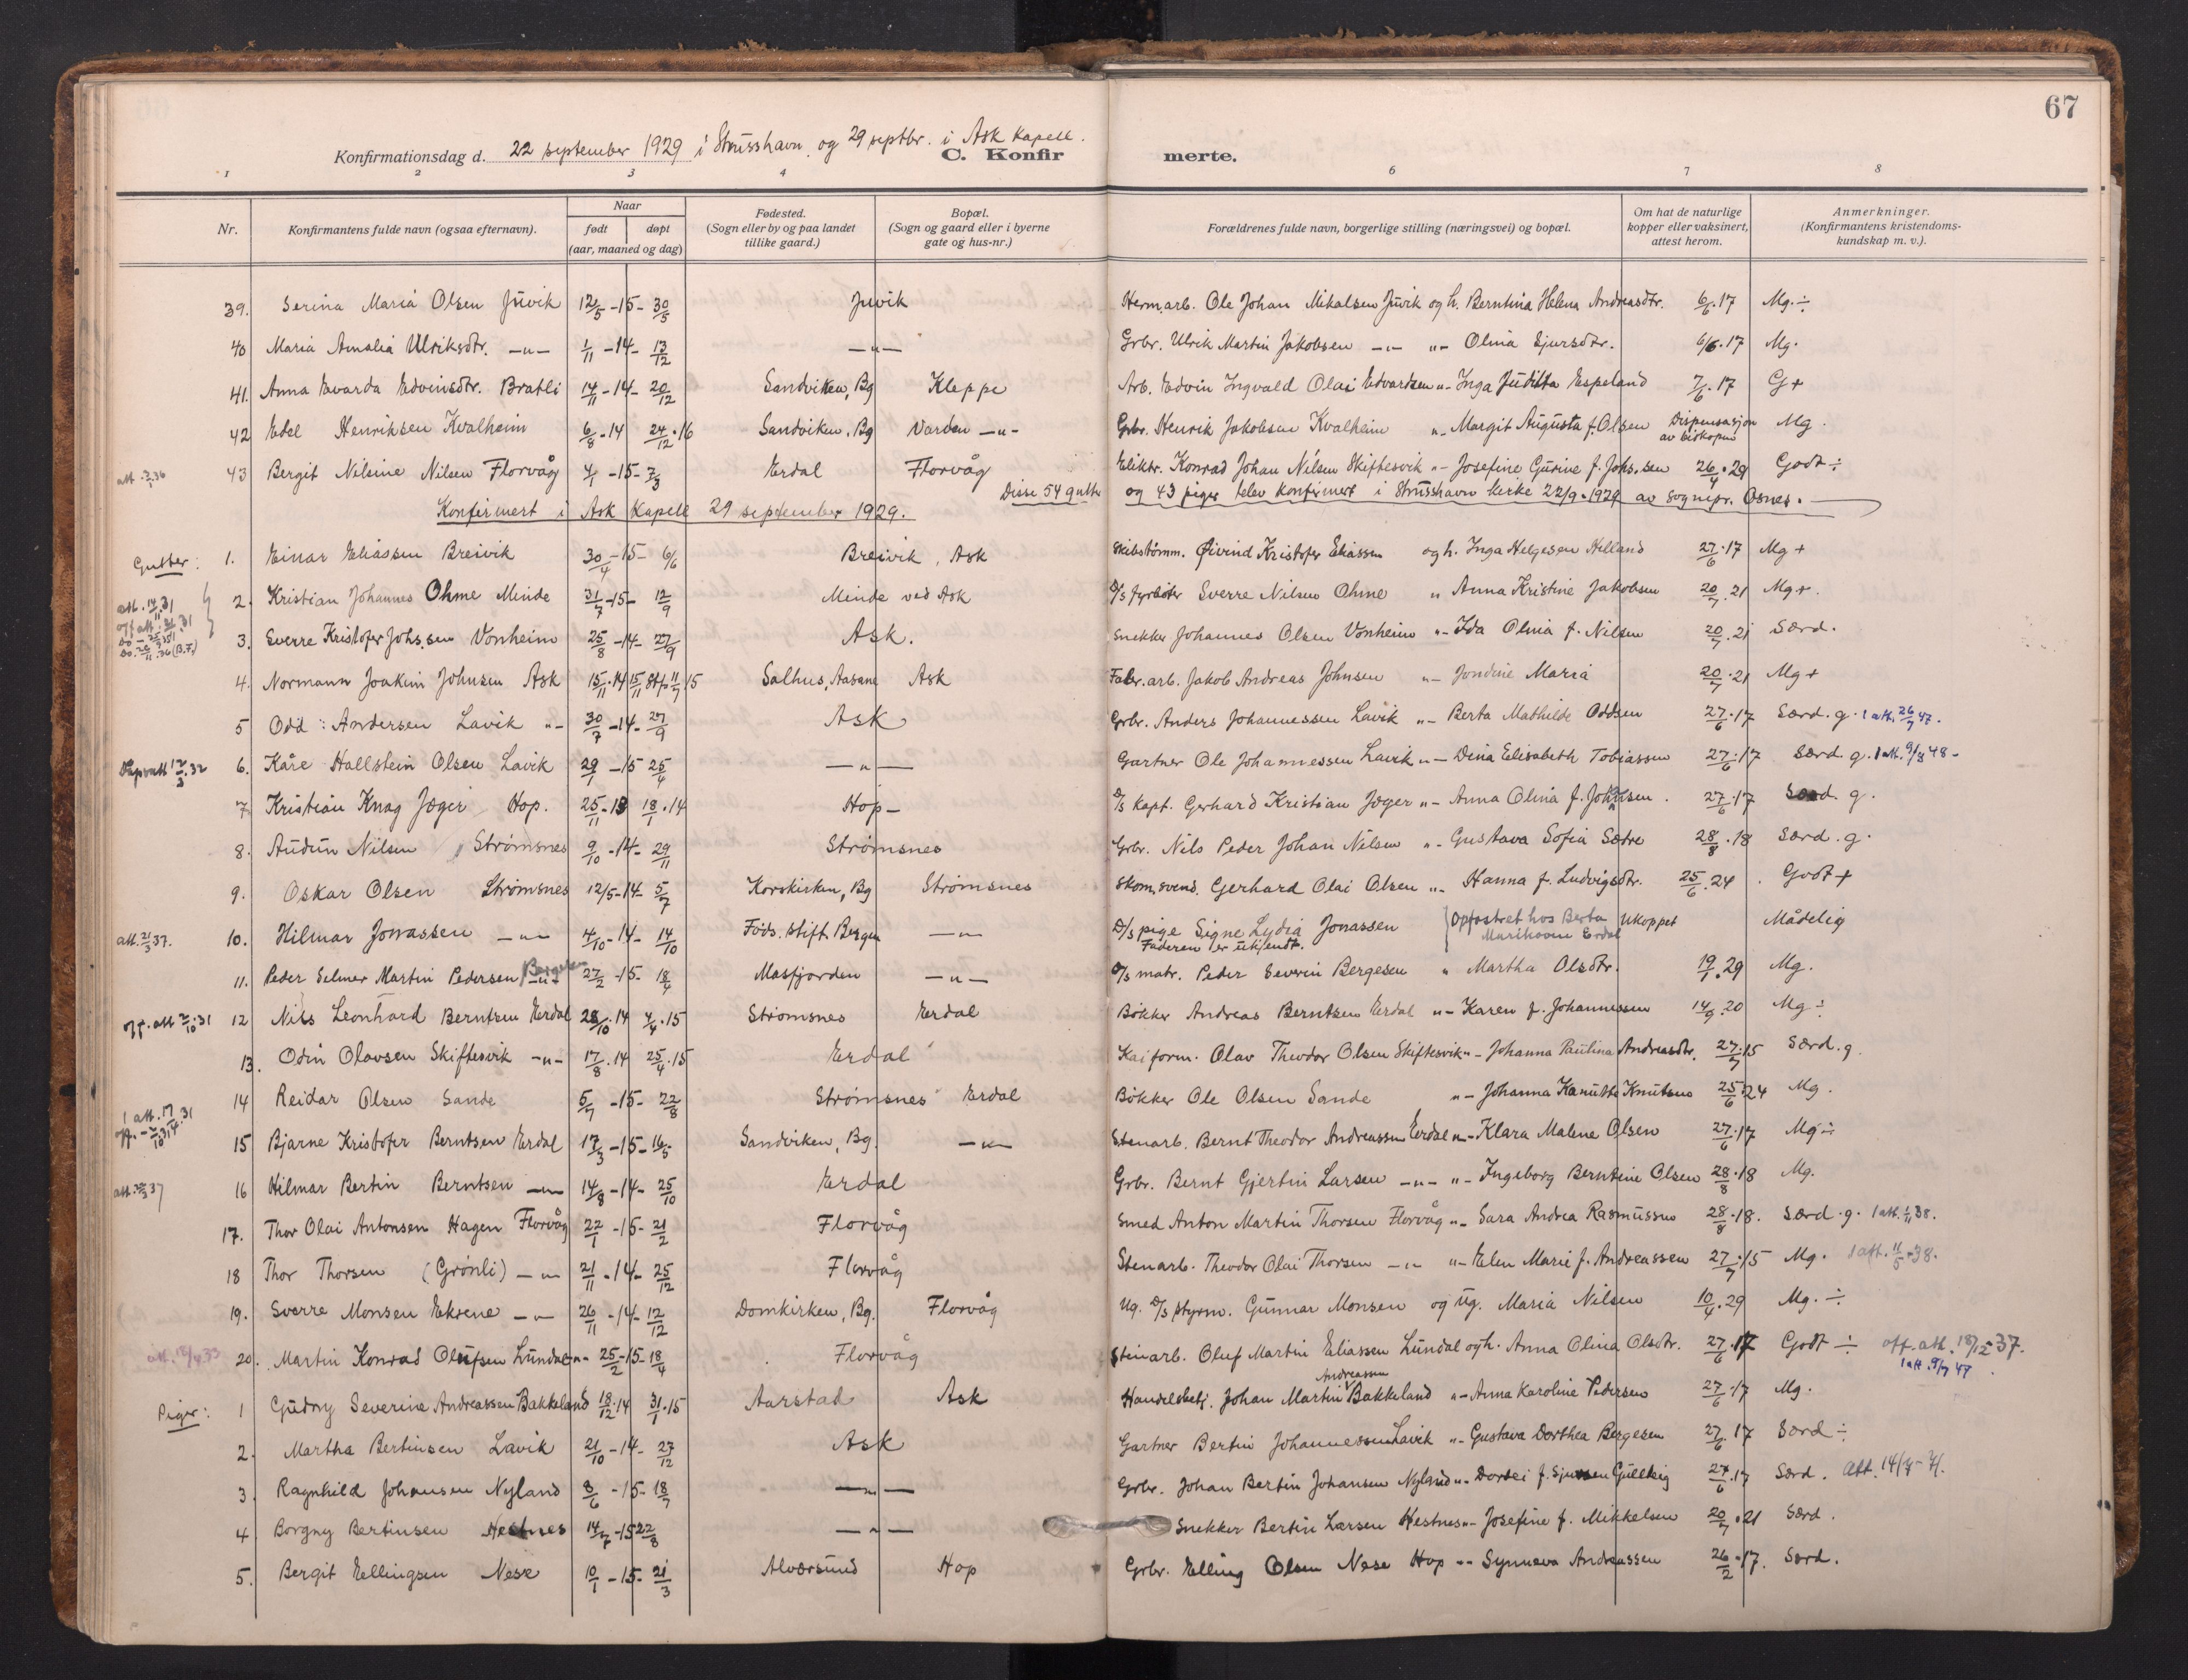 67
Konfirmationsdag d. 22 september 1929 i Strusshavn og 29 septbr. i Ask Kapell.
C. Konfirmerte.
1 2 3 4 6 7 8
Nr. Konfirmantens fulde navn (ogsaa efternavn). Naar født døpt (aar, maaned og dag) Fødested. (Sogn eller by og paa landet tillike gaard.) Bopæl. (Sogn og gaard eller i byerne gate og hus-nr.) Forældrenes fulde navn, borgerlige stilling (næringsvei) og bopæl. Om hat de naturlige kopper eller vaksinert, attest herom. Anmerkninger. (Konfirmantens kristendomskundskap m. v.).
39. Serina Maria Olsen Juvik 12/5 -15- 30/5 Juvik Hermarb. Ole Johan Mikalsen Juvik og h. Berntina Helena Andreasdtr. 6/6.17 Mg. ÷
40 Maria Amalia Ulriksdtr. -"- 1/11 -14- 13/12 -"- Grbr. Ulrik Martin Jakobsen -"- "- Olina Sjursdtr. 6/6.17 Mg.
41. Anna Evarda Edvinsdtr. Bratli 14/11 -14- 20/12 Sandviken, Bg Kleppe Arb. Edvin Ingvald Olai Edvardsen "- Inga Juditta Espeland 7/6.17 G+
42 Edel Henriksen Kvalheim 6/8.14 24/12.16 Sandviken, Bg Varden -"- Grbr. Henrik Jakobsen Kvalheim "- Margit Augusta f. Olsen Dispensasjon av biskopen Mg.
att. 36 43 Bergit Nilsine Nilsen Florvåg 4/1 -15- 7/3 Erdal Florvåg Elektr. Konrad Johan Nilsen Skiftesvik "- Josefine Gurine f. Johs.sen 26/4.29 Godt ÷
Disse 54 gutter og 43 piger blev konfirmert i Strusshavn kirke 22/9-1929 av sognepr. Osnes.
Konfirmert i Ask Kapell 29 september 1929.
Gutter: 1. Einar Eliassen Breivik 30/4 -15- 6/6 Breivik, Ask Skibstømm. Øivind Kristofer Eliassen og h. Inga Helgesen Helland 27/6.17 Mg +
att. 14/11 31 2. Kristian Johannes Ohme Minde 31/7 -15- 12/9 Minde ved Ask D/s fyrbøter Sverre Nilsen Ohme " Anna Kristine Jakobsen 20/7.21 Mg+.
3. Sverre Kristofer Johs.sen Vonheim 25/8 -14- 27/9 Ask. Snekker Johannes Olsen Vonheim "- Ida Olina f. Nilsen 20/7.21 Særd.
4. Normann Joakim Johnsen Ask 15/11.14 15/11 Stf. 11/7 15 Salhus, Aasane Ask Fabr.arb. Jakob Andreas Johnsen "- Jondine Maria 20/7.21 Mg+
5 Odd Andersen Lavik "- 30/7 -14- 27/9 Ask Grbr. Anders Johannessen Lavik "- Berta Mathilde Oddsen 27/6.17 Særd. g. 1 att. 26/7 47.
Dåpsatt 12/3.32 6. Kåre Hallstein Olsen Lavik 29/1 -15 25/4 -"- Gartner Ole Johannessen Lavik "- Dina Elisabeth Tobiassen 27/6.17 Særd. g. 1 att. 9/8 48-
7 Kristian Knag Jæger Hop. 25/11-13 18/1.14 Hop- D/s kapt. Gerhard Kristian Jæger "- Anna Olina f. Johnsen. 27/6.17 Særd. g.
8. Audun Nilsen Strømsnes 9/10 -14- 29/11 Strømsnes Grbr. Nils Peder Johan Nilsen "- Gustava Sofia Sætre 28/8.18 Særd. g.
9. Oskar Olsen Strømsnes 12/5-14- 5/7 Korskirken, Bg Strømsnes Skom.svend. Gerhard Olai Olsen "- Hanna f. Ludvigsdtr. 25/6.24. Godt+
att. 21/3 37. 10. Hilmar Jonassen -"- 4/10 -14- 14/10 Føds. stift. Bergen -"- D/s pige Signe Lydia Jonassen Faderen er ukjendt. Opfostret hos Berta Marthasen Erdal Ukoppet Mådelig
11. Peder Selmer Martin Pedersen Bergesen -"- 27/2 -15- 18/4 Masfjorden -"- D/s matr. Peder Severin Bergesen " Martha Olsdtr. 19/1.29 Mg.
off. att 2/10.31 12 Nils Leonhard Berntsen Erdal 28/10.14 4/4.15 Strømsnes Erdal Bøkker Andreas Berntsen Erdal "- Karen f. Johannessen 14/9.20 Mg ÷
13. Odin Olavsen Skiftesvik -"- 17/8.14 25/4.15 Erdal Kaiform. Olav Theodor Olsen Skiftesvik "- Johanna Paulina Andreasdtr. 27/7.15 Særd. g.
14 Reidar Olsen Sande 5/7 -15- 22/8 Strømsnes Erdal Bøkker Ole Olsen Sande "- Johanna Kanutte Knutsen 25/6.24 Mg.
1 att. 17/4.31 off. - 2/10 31 15 Bjarne Kristofer Berntsen Erdal 17/3 -15- 16/5 Sandviken, Bg. -"- Stenarb. Bernt Theodor Andreassen Erdal "- Klara Malene Olsen 27/6.17 Mg ÷
att. 37 16 Hilmar Bertin Berntsen -"- 14/8 -14- 25/10 Erdal Grbr. Bernt Gjertin Larsen -"- "- Ingeborg Berntine Olsen 28/8.18 Mg.
17. Thor Olai Antonsen Hagen Florvåg 22/1 -15- 21/2 Florvåg Smed Anton Martin Thorsen Florvåg "- Sara Andrea Rasmussen 28/8.18. Særd. g. 1 att. 1/11 38.
18 Thor Thorsen (Grønli) -"- 21/11 -14- 25/12 Florvåg Stenarb. Theodor Olai Thorsen -"- "- Elen Marie f. Andreassen 27/7.15 Mg. 1 att. 11/5-38.
19. Sverre Monsen Ekrene -"- 26/11 -14- 12/12 Domkirken, Bg. Florvåg Ug. D/s styrm. Gunnar Monsen og ug. Maria Nilsen 10/4.29 Mg. ÷
att. 18/4 33 20. Martin Konrad Olufsen Lundal -"- 25/2-15- 18/4 Florvåg Stenarb. Oluf Martin Eliassen Lundal og h. Anna Olina Olsdtr. 27/6.17 Godt ÷ off. att. 18/12 37. 1 att. 9/7 47.
Piger: 1 Gudny Severine Andreassen Bakkeland 18/12.14 31/1.15 Aarstad Ask Handelsbetj. Johan Martin Andreassen Bakkeland "- Anna Karoline Pedersen 27/6.17 Mg.
2. Martha Bertinsen Lavik 21/10 -14- 27/12 Ask Gartner Bertin Johannessen Lavik "- Gustava Dorthea Bergesen 27/6.17 Særd ÷
3. Ragnhild Johansen Nyland 8/6 -15- 18/7 -"- Grbr. Johan Bertin Johansen Nyland "- Dortei f. Sjursen Gulleig 27/6.17 Særd. Att. 14/4-71.
4 Borgny Bertinsen Hestnes 14/7 -15 22/8 -"- Snekker Bertin Larsen Hestnes "- Josefine f. Mikkelsen 20/7.21 Særd.
5. Bergit Ellingsen Nese 10/1 -15- 21/3 Alversund Hop Grbr. Elling Olsen Nese Hop "- Synneva Andreassen 26/2.17. Særd.